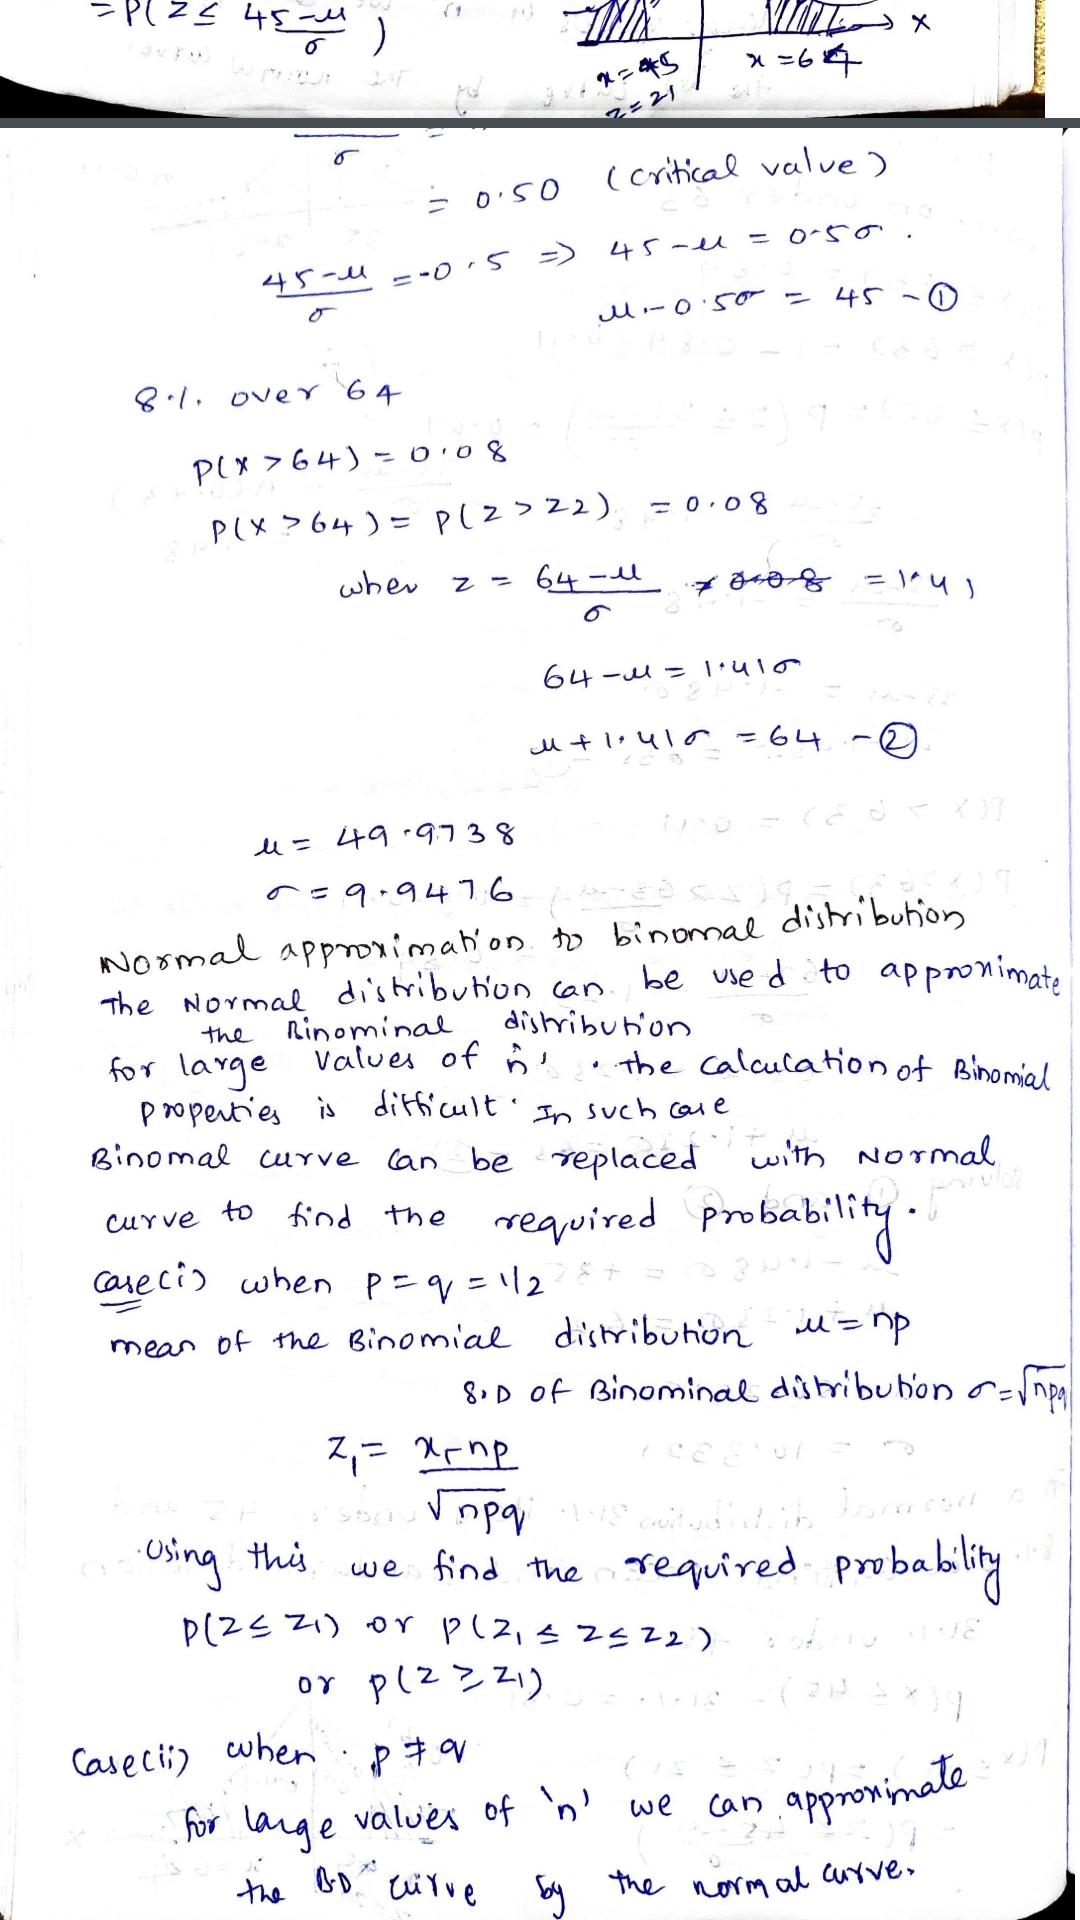 = P(Z ≤ 45-μ/σ)
x = 45
x = 64
x
z = z1
σ
= 0.50 (critical value)
45-μ/σ = -0.5 ⇒ 45-μ = 0.5σ.
μ - 0.5σ = 45 - ①
8.1. over 64
P(X > 64) = 0.08
P(X > 64) = P(Z > Z2) = 0.08
wher z = 64-μ/σ = 1.41
64-μ = 1.41σ
μ + 1.41σ = 64 - ②
μ = 49.9738
σ = 9.9476
Normal approximation to binomal distribution
The Normal distribution can be used to approximate
the Binominal distribution
for large values of 'n'. the calculation of Binomial
properties is difficult. In such case
Binomal curve can be replaced with Normal
curve to find the required probability.
case(i) when p = q = 1/2
mean of the Binomial distribution μ = np
S.D of Binominal distribution σ = √npq
Z1 = x1-np/√npq
Using this we find the required probability
P(Z ≤ Z1) or P(Z1 ≤ Z ≤ Z2)
or P(Z ≥ Z1)
Case(ii) when p ≠ q
for large values of 'n' we can approximate
the B.D curve by the normal curve.